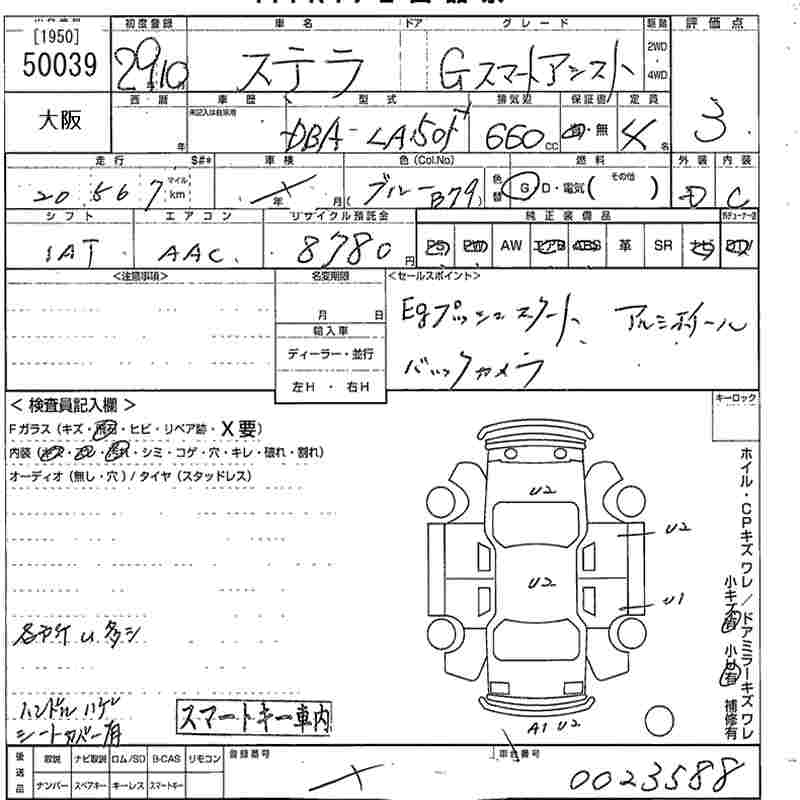 [1950]
50039
初度登録 車名 ドア グレード 駆動 評価点
29/10 ステラ Gスマートアシスト 2WD 4WD
大阪
西暦 車歴 型式 排気量 保証書 定員
未記入は自家用
年 DBA-LA150F 660 cc 有・無 4名 3
走行 S#* 車検 色(Col.No) 色替 燃料 外装 内装
20,567 マイル km 年 月 (ブルーB79) G・D・電気( その他 ) D C
シフト エアコン リサイクル預託金 純正装備品
IAT AAC 8780円 PS PW AW エアB ABS 革 SR ナビ DTV
<注意事項> 名変期限 <セールスポイント>
月 日
Egプッシュスタート アルミホイール
輸入車
バックカメラ
ディーラー・並行
左H・右H
<検査員記入欄> キーロック
Fガラス(キズ・飛石・ヒビ・リペア跡・X要)
内装(キズ・スレ・汚れ・シミ・コゲ・穴・キレ・破れ・割れ)
オーディオ(無し・穴)/タイヤ(スタッドレス)
ホイル・CPキズワレ/ドアミラーキズワレ
小キズ有 小凹有 補修有
U2
U2
U2
U1
A1 U2
各所キズ U 多シ
ハンドルハゲ
シートカバー有
スマートキー車内
後送品 取説 ナビ取説 ロム/SD B-CAS リモコン 登録番号 車台番号
ナンバー スペアキー キーレス スマートキー 0023588